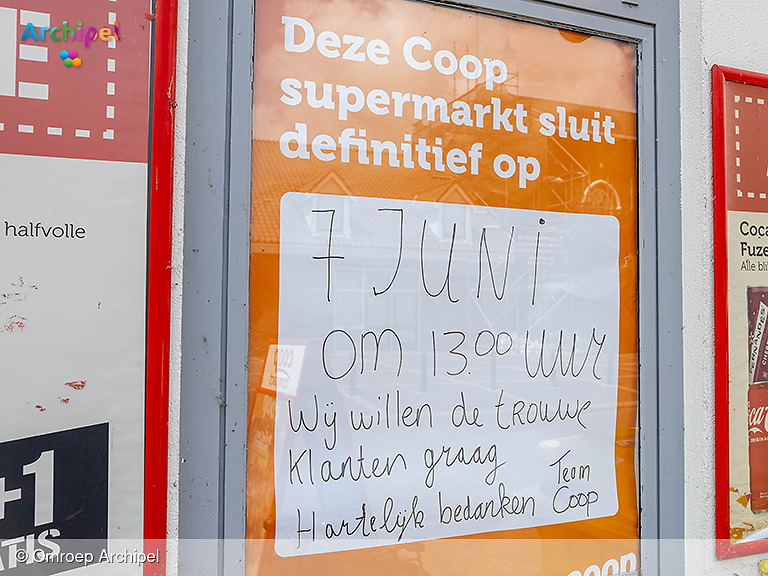 Archipel
halfvolle
+1
GRATIS
Deze Coop
supermarkt sluit
definitief op
7 JUNI
om 13.00 uur
Wij willen de trouwe
Klanten graag
Hartelijk bedanken
Team
Coop
coop
© Omroep Archipel